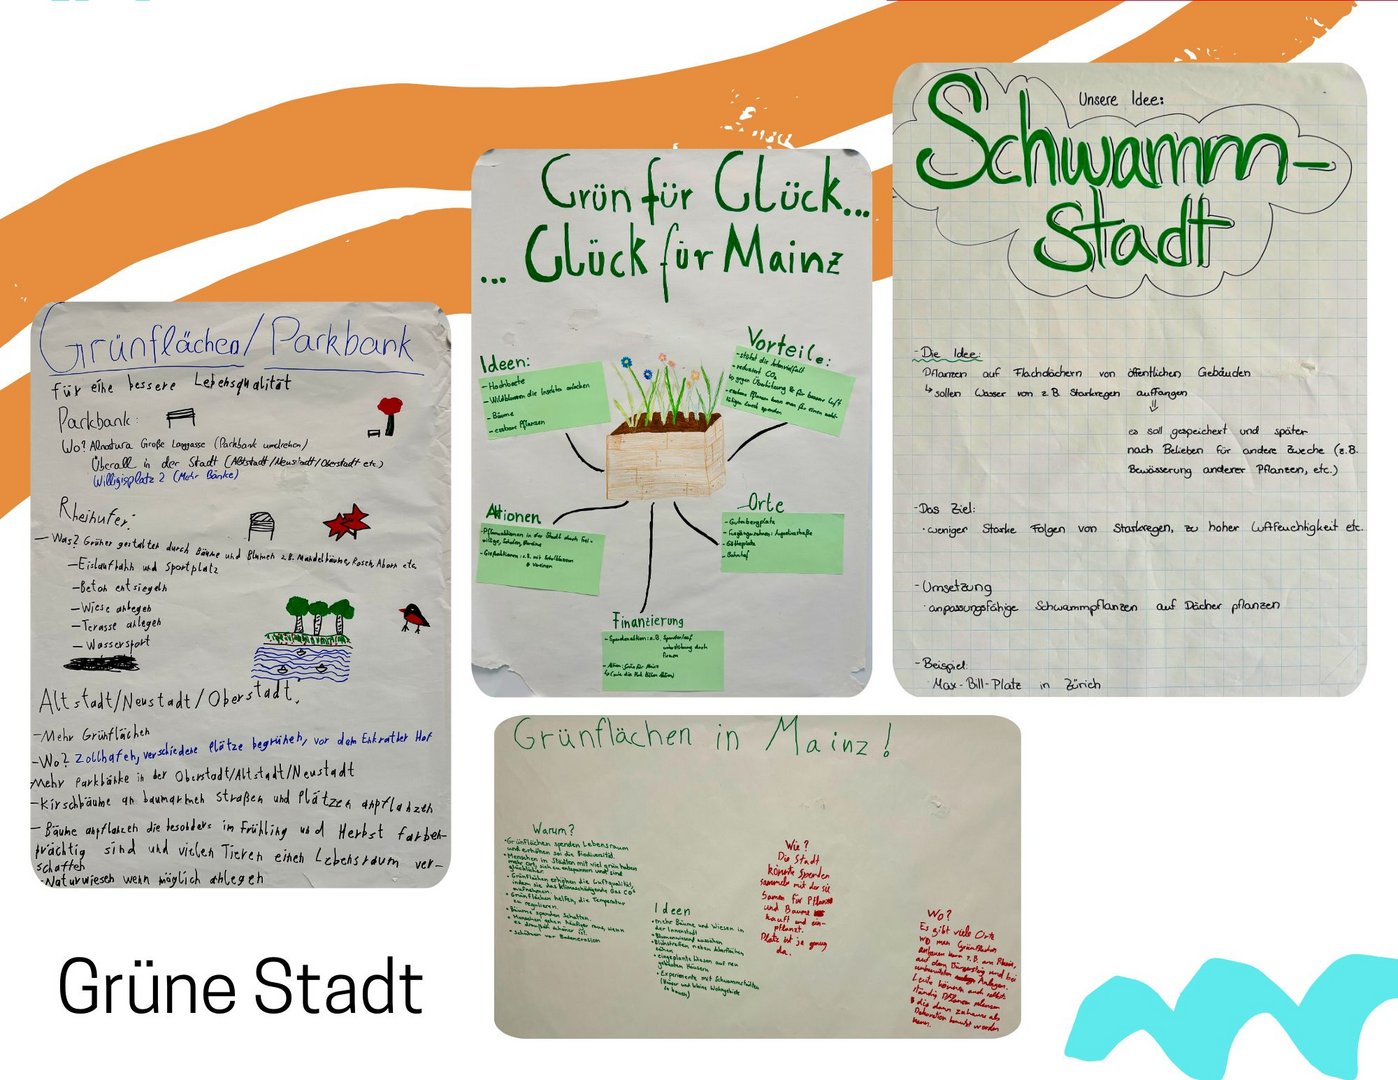 Grünflächen/Parkbank
für eine bessere Lebensqualität
Parkbank:
Wo? Alnatura Große Langgasse (Parkbank umdrehen)
Überall in der Stadt (Altstadt/Neustadt/Oberstadt etc.)
Willigisplatz 2 (Mehr Bänke)
Rheinufer:
- Was? Grüner gestalten durch Bäume und Blumen z.B. Mandelbäume, Rosen, Ahorn etc.
- Eislaufbahn und Sportplatz
- Beton entsiegeln
- Wiese anlegen
- Terasse anlegen
- Wassersport
Altstadt/Neustadt/Oberstadt.
- Mehr Grünflächen
- Wo? Zollhafen, verschiedene Plätze begrünen, vor dem Erkrather Hof
Mehr Parkbänke in der Oberstadt/Altstadt/Neustadt
- Kirschbäume an baumarmen Straßen und Plätzen anpflanzen
- Bäume anpflanzen die besonders im Frühling und Herbst farben-
prächtig sind und vielen Tieren einen Lebensraum ver-
schaffen
- Naturwiesen wenn möglich anlegen
Grün für Glück...
... Glück für Mainz
Ideen:
- Hochbeete
- Wildblumen die Insekten anlocken
- Bäume
- essbare Pflanzen
Vorteile:
- stärkt die Artenvielfalt
- reduziert CO₂
↳ gegen Überhitzung & für bessere Luft
Aktionen
- Pflanzaktionen in der Stadt durch Frei-
willige, Schulen, Vereine
- Großaktionen: z.B. mit Schulklassen
& Vereinen
Orte
- Gutenbergplatz
- Fußgängerzonen: Augustinerstraße
- Goetheplatz
- Bahnhof
Finanzierung
- Spendenaktion: z.B. Spendenlauf
unterstützung durch
Firmen
- Aktion: Grün für Mainz
Unsere Idee:
Schwamm-
Stadt
- Die Idee:
Pflanzen auf Flachdächern von öffentlichen Gebäuden
↳ sollen Wasser von z.B. Starkregen auffangen
⇓
es soll gespeichert und später
nach Belieben für andere Zwecke (z.B.
Bewässerung anderer Pflanzen, etc.)
- Das Ziel:
· weniger Starke Folgen von Starkregen, zu hoher Luftfeuchtigkeit etc.
- Umsetzung
· anpassungsfähige Schwammpflanzen auf Dächer pflanzen
- Beispiel:
Max-Bill-Platz in Zürich
Grünflächen in Mainz!
Warum?
• Grünflächen spenden Lebensraum
und erhöhen so die Biodiversität.
• Menschen in Städten mit viel grün haben
mehr Ort, sich zu entspannen und sind
glücklicher.
• Grünflächen erhöhen die Luftqualität,
indem sie das klimaschädigende Gas CO²
aufnehmen.
• Grünflächen helfen, die Temperatur
zu regulieren.
• Bäume spenden Schatten.
• Menschen gehen häufiger raus, wenn
es draußen schöner ist.
• schützen vor Bodenerosion
Ideen
• mehr Bäume und Wiesen in
der Innenstadt
• Blühstreifen neben
• eingeplante Wiesen auf neu
gebauten Häusern
• Experimente mit Schwammstädten
(Häuser und kleine Wohngebiete
so bauen)
Wie?
Die Stadt
könnte Spenden
sammeln mit der sie
Samen für Pflanzen
und Bäume
kauft und ein-
pflanzt.
Platz ist ja genug
da.
Wo?
Es gibt viele Orte
wo man Grünflächen
anbauen kann z.B. am Rhein,
auf dem Bürgersteig und bei
Anlagen.
Leute können auch selbst-
ständig Pflanzen pflanzen
die dann zuhause als
Dekoration benutzt werden
kann.
Grüne Stadt